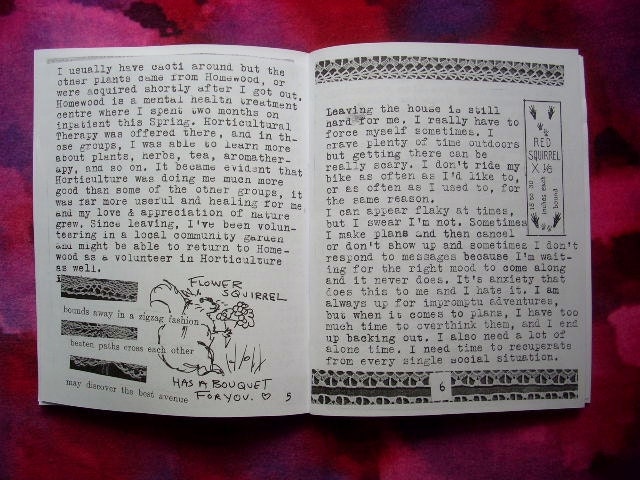 I usually have cacti around but the
other plants came from Homewood, or
were acquired shortly after I got out.
Homewood is a mental health treatment
centre where I spent two months on
inpatient this Spring. Horticultural
Therapy was offered there, and in th-
ose groups, I was able to learn more
about plants, herbs, tea, aromather-
apy, and so on. It became evident that
Horticulture was doing me much more
good than some of the other groups, it
was far more useful and healing for me
and my love & appreciation of nature
grew. Since leaving, I've been volun-
teering in a local community garden
and might be able to return to Home-
wood as a volunteer in Horticulture
as well.
FLOWER
SQUIRREL
bounds away in a zigzag fashion
beaten paths cross each other
may discover the best avenue
HAS A BOUQUET
FOR YOU. ♡
5
Leaving the house is still
hard for me. I really have to
force myself sometimes. I
crave plenty of time outdoors
but getting there can be
really scary. I don't ride my
bike as often as I'd like to,
or as often as I used to, for
the same reason.
I can appear flaky at times,
but I swear I'm not. Sometimes
I make plans and then cancel
or don't show up and sometimes I don't
respond to messages because I'm wait-
ing for the right mood to come along
and it never does. It's anxiety that
does this to me and I hate it. I am
always up for impromptu adventures,
but when it comes to plans, I have too
much time to overthink them, and I end
up backing out. I also need a lot of
alone time. I need time to recuperate
from every single social situation.
RED
SQUIRREL
inches each
bound
6